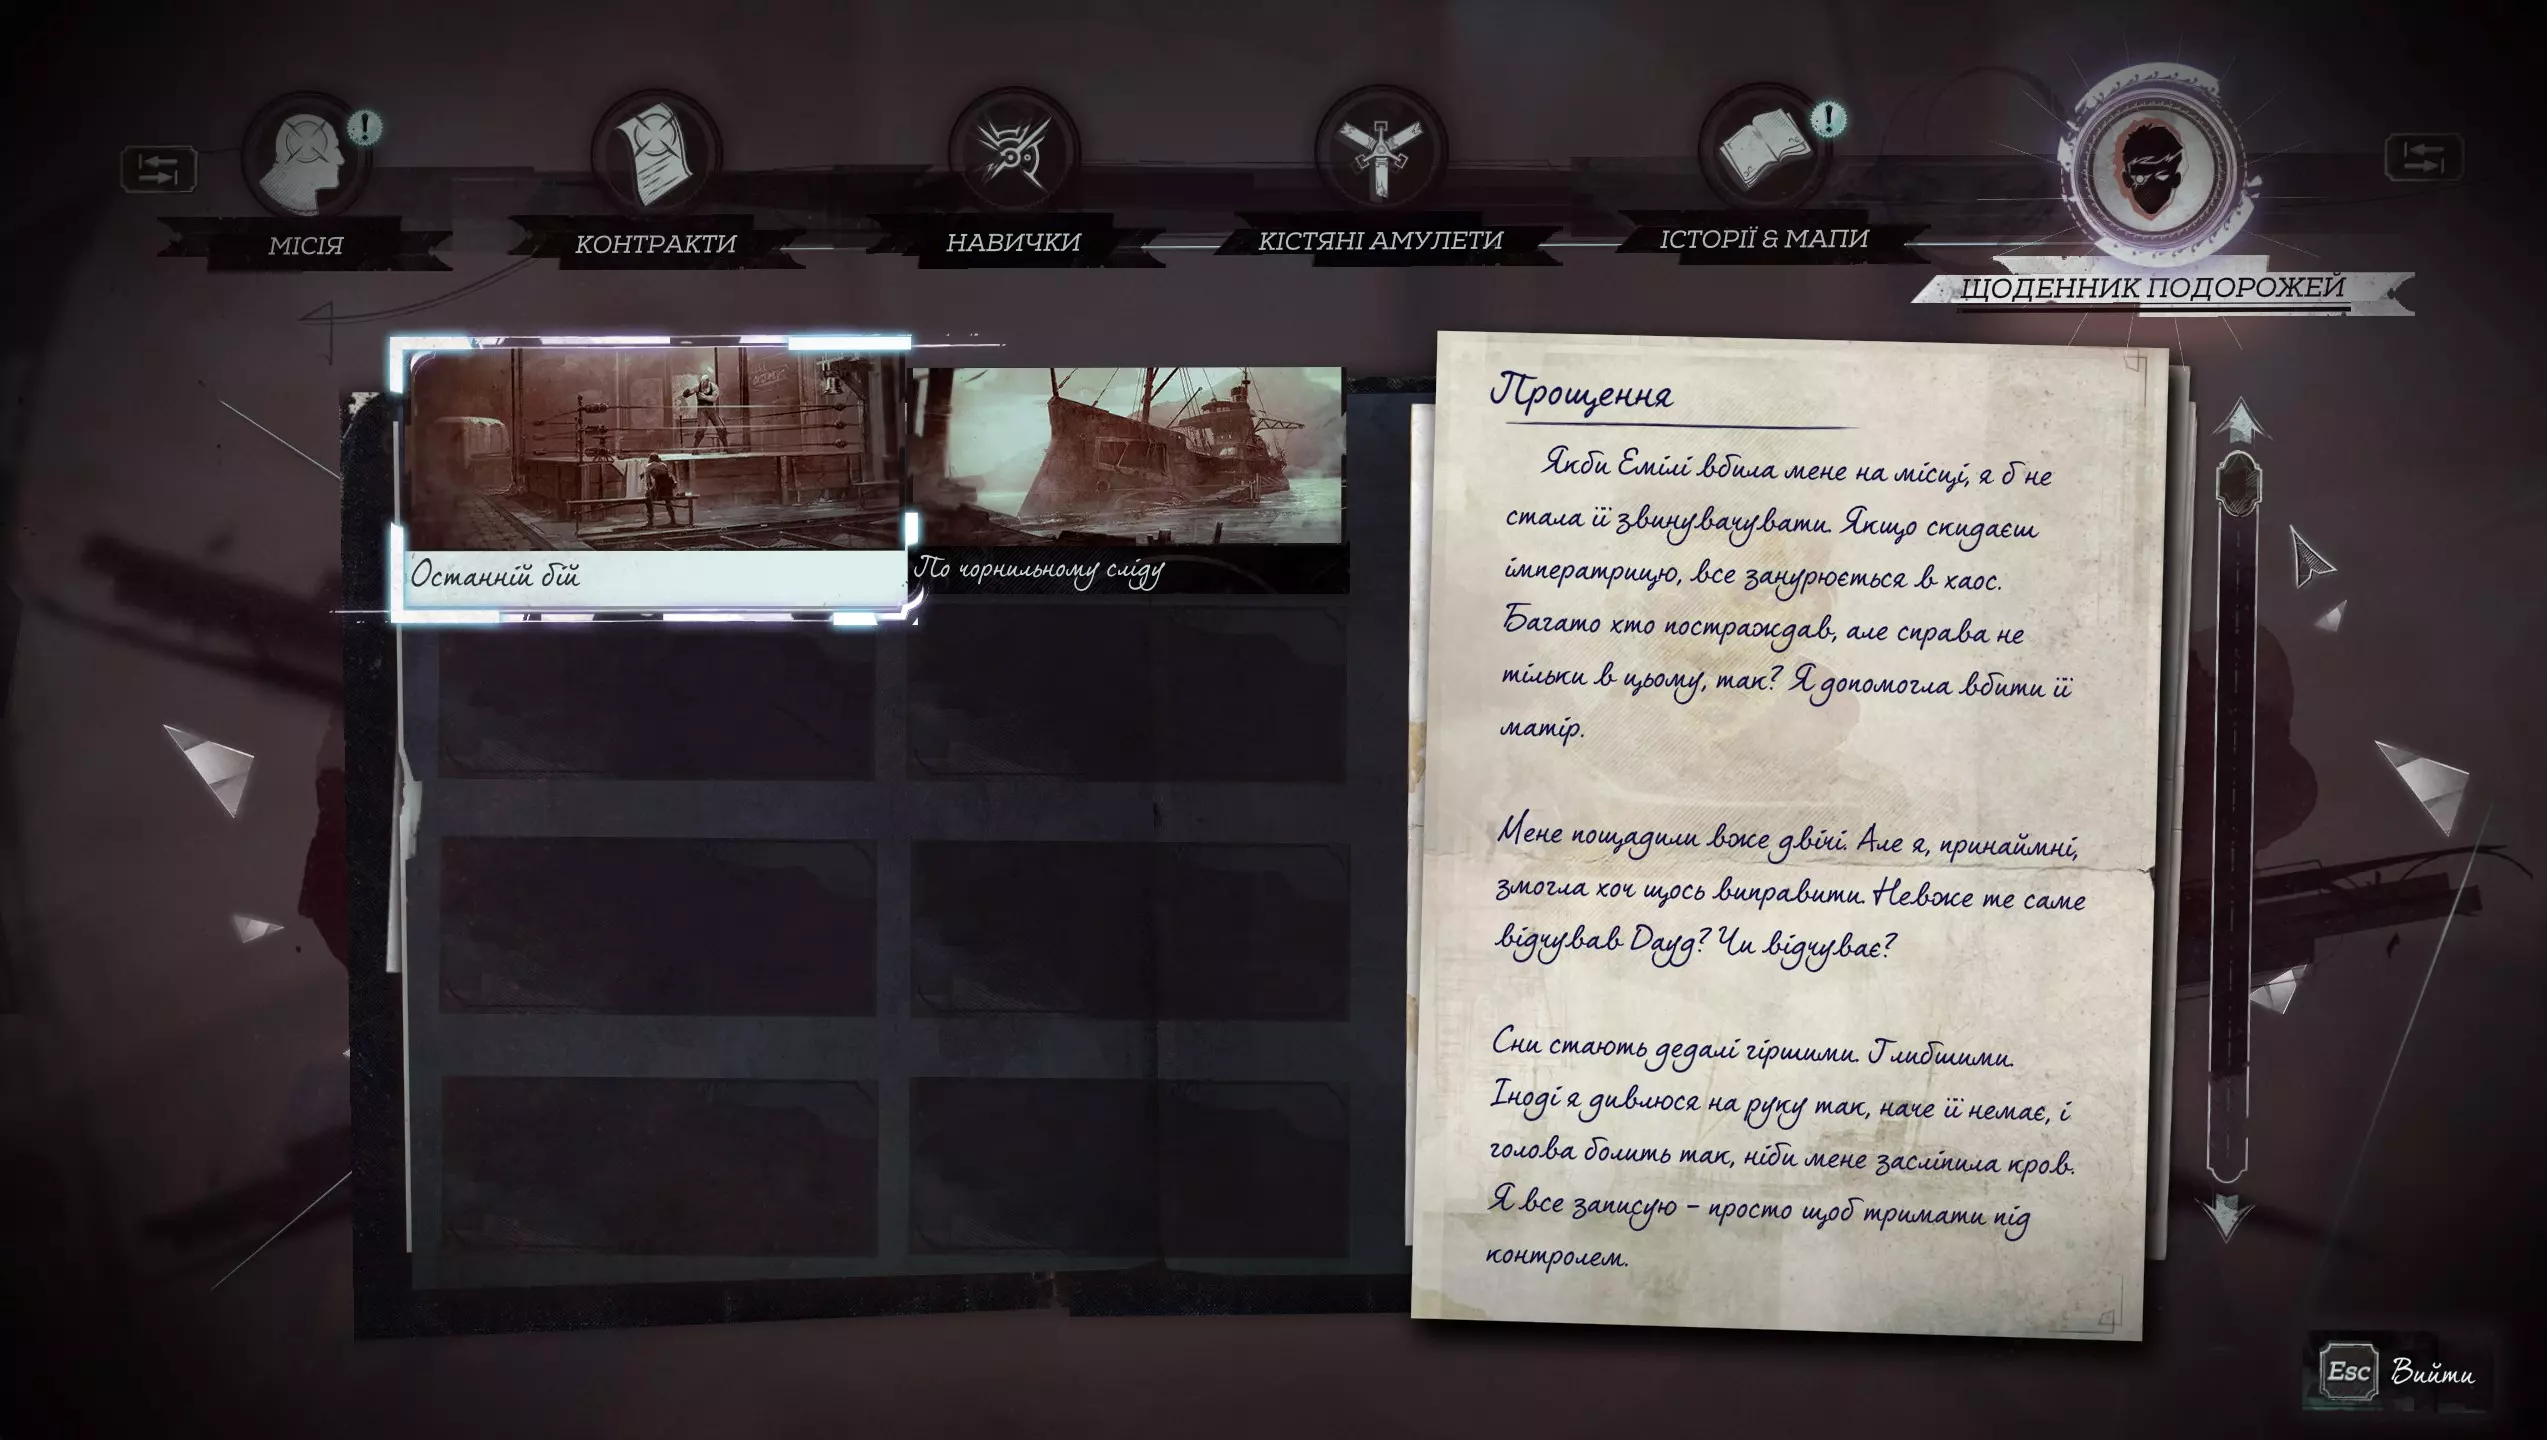 МІСІЯ
КОНТРАКТИ
НАВИЧКИ
КІСТЯНІ АМУЛЕТИ
ІСТОРІЇ & МАПИ
ЩОДЕННИК ПОДОРОЖЕЙ
Останній бій
По чорнильному сліду
Прощення
Якби Емілі вбила мене на місці, я б не
стала її звинувачувати. Якщо скидаєш
імператрицю, все занурюється в хаос.
Багато хто постраждав, але справа не
тільки в цьому, так? Я допомогла вбити її
матір.
Мене пощадили вже двічі. Але я, принаймні,
змогла хоч щось виправити. Невже те саме
відчував Дауд? Чи відчуває?
Сни стають дедалі гіршими. Глибшими.
Іноді я дивлюся на руку так, наче її немає, і
голова болить так, ніби мене засліпила кров.
Я все записую – просто щоб тримати під
контролем.
Esc Вийти